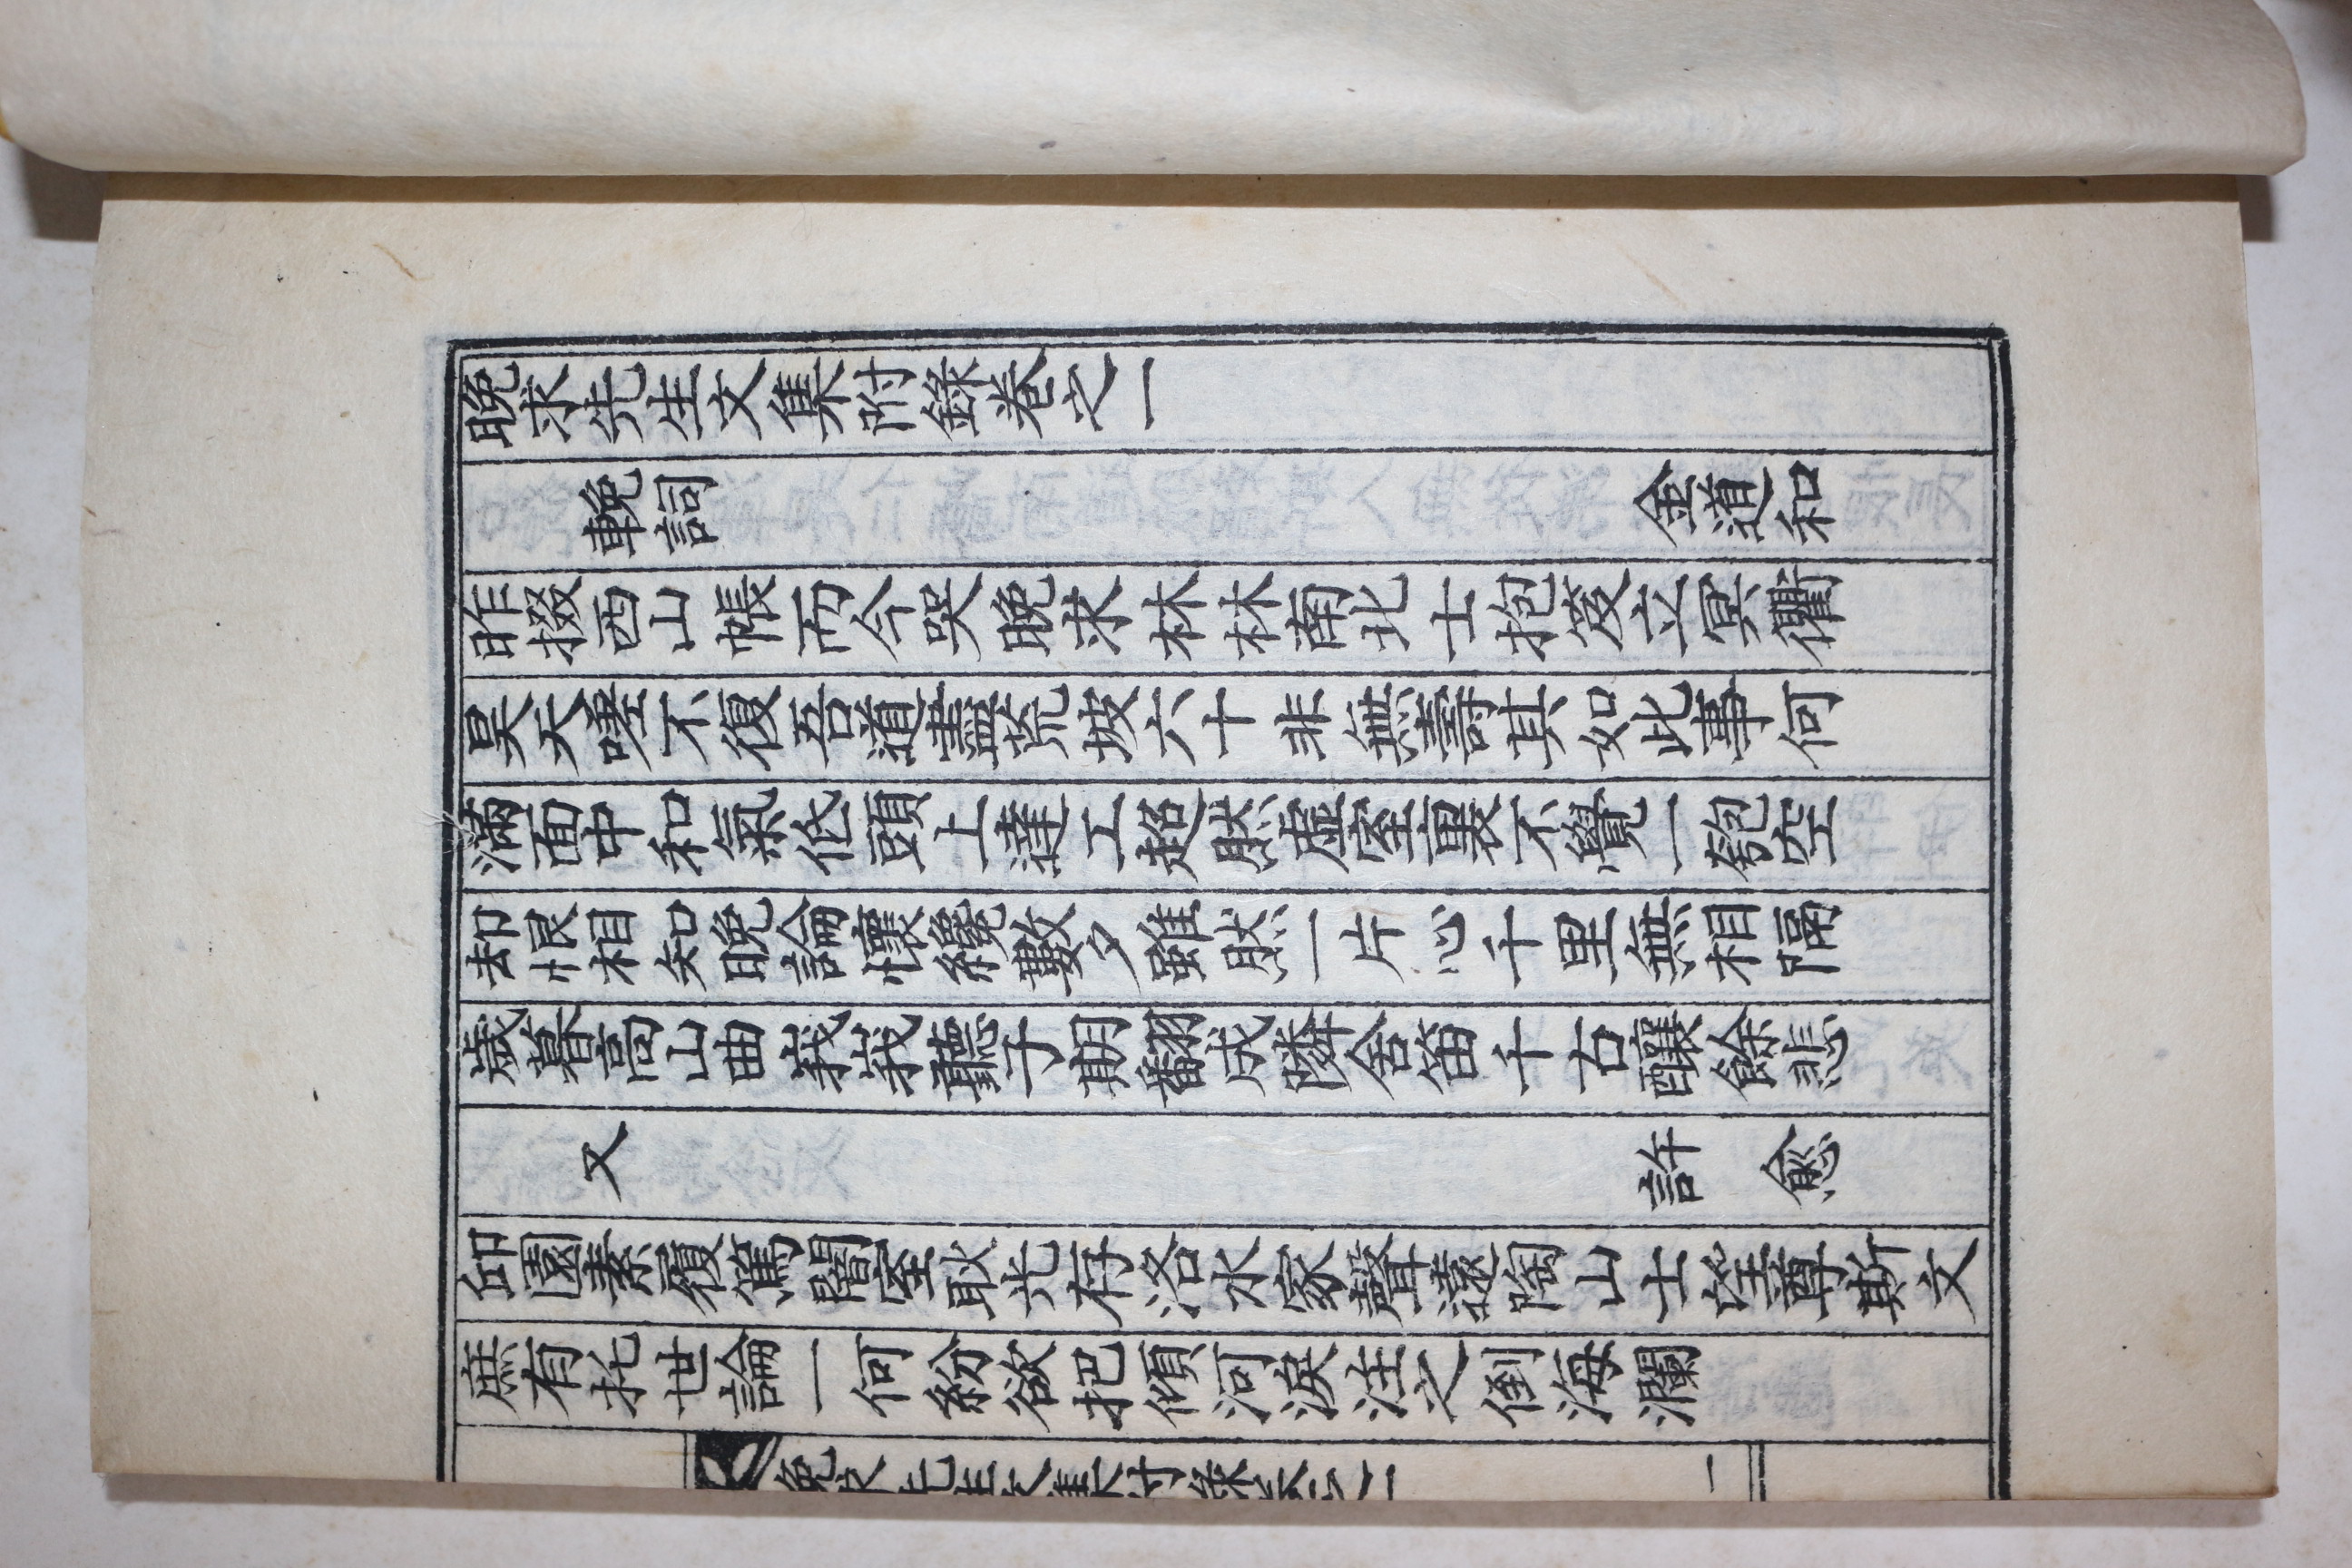 晩求先生文集附錄卷之一
輓詞 金道和
昨掇西山帳而今哭晩求林林南北士抱笈立冥衢
昊天噎不復吾道盡荒坡六十非無壽其如此事何
滿面中和氣低頭上達工超然虛室裏不覺一匏空
却恨相知晩論懷纔數夕雖然一片心千里無相隔
歲暮高山曲峩峩聽子期翻成隣舍笛千古釀餘悲
又 許愈
邱園素履篤闇室耿光存洛水家聲遠陶山士望尊斯文
庶有托世論一何紛欲把傾河淚注之倒海瀾
晩求先生文集附錄卷之一 一